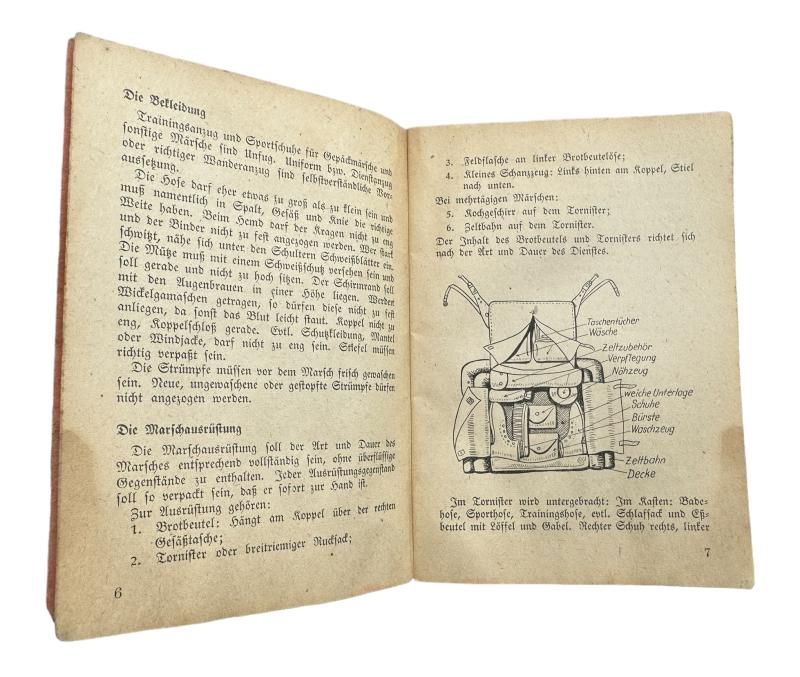 Die Bekleidung
Trainingsanzug und Sportschuhe für Gepäckmärsche und
sonstige Märsche sind Unfug. Uniform bzw. Dienstanzug
oder richtiger Wanderanzug sind selbstverständliche Vor-
aussetzung.
Die Hose darf eher etwas zu groß als zu klein sein und
muß namentlich in Spalt, Gesäß und Knie die richtige
Weite haben. Beim Hemd darf der Kragen nicht zu eng
und der Binder nicht zu fest angezogen werden. Wer stark
schwitzt, nähe sich unter den Schultern Schweißblätter ein.
Die Mütze muß mit einem Schweißschutz versehen sein und
soll gerade und nicht zu hoch sitzen. Der Schirmrand soll
mit den Augenbrauen in einer Höhe liegen. Werden
Wickelgamaschen getragen, so dürfen diese nicht zu fest
anliegen, da sonst das Blut leicht staut. Koppel nicht zu
eng, Koppelschloß gerade. Evtl. Schutzkleidung, Mantel
oder Windjacke, darf nicht zu eng sein. Stiefel müssen
richtig verpaßt sein.
Die Strümpfe müssen vor dem Marsch frisch gewaschen
sein. Neue, ungewaschene oder gestopfte Strümpfe dürfen
nicht angezogen werden.
Die Marschausrüstung
Die Marschausrüstung soll der Art und Dauer des
Marsches entsprechend vollständig sein, ohne überflüssige
Gegenstände zu enthalten. Jeder Ausrüstungsgegenstand
soll so verpackt sein, daß er sofort zur Hand ist.
Zur Ausrüstung gehören:
1. Brotbeutel: Hängt am Koppel über der rechten
Gesäßtasche;
2. Tornister oder breitriemiger Rucksack;
6
3. Feldflasche an linker Brotbeutelöse;
4. Kleines Schanzzeug: Links hinten am Koppel, Stiel
nach unten.
Bei mehrtägigen Märschen:
5. Kochgeschirr auf dem Tornister;
6. Zeltbahn auf dem Tornister.
Der Inhalt des Brotbeutels und Tornisters richtet sich
nach der Art und Dauer des Dienstes.
Taschentücher
Wäsche
Zeltzubehör
Verpflegung
Nähzeug
weiche Unterlage
Schuhe
Bürste
Waschzeug
Zeltbahn
Decke
Im Tornister wird untergebracht: Im Kasten: Bade-
hose, Sporthose, Trainingshose, evtl. Schlafsack und Eß-
beutel mit Löffel und Gabel. Rechter Schuh rechts, linker
7